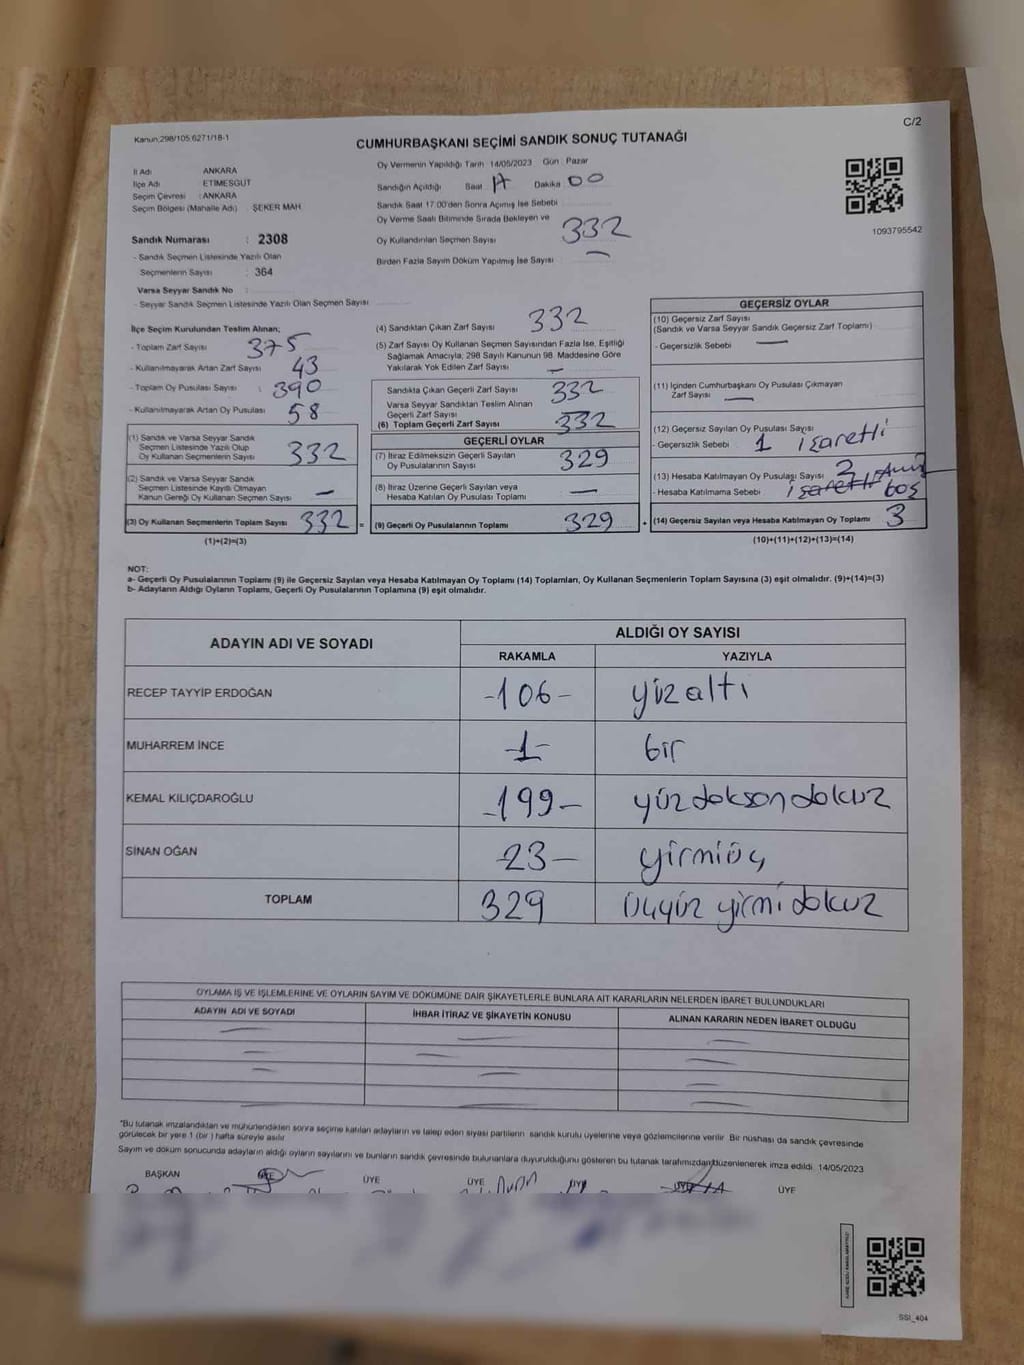 C/2
Kanun:298/105,6271/18-1
CUMHURBAŞKANI SEÇİMİ SANDIK SONUÇ TUTANAĞI
İl Adı ANKARA
İlçe Adı ETİMESGUT
Seçim Çevresi : ANKARA
Seçim Bölgesi (Mahalle Adı) : ŞEKER MAH.
Sandık Numarası : 2308
- Sandık Seçmen Listesinde Yazılı Olan
Seçmenlerin Sayısı : 364
Varsa Seyyar Sandık No :
- Seyyar Sandık Seçmen Listesinde Yazılı Olan Seçmen Sayısı
Oy Vermenin Yapıldığı Tarih 14/05/2023 Gün : Pazar
Sandığın Açıldığı Saat 17 Dakika 00
Sandık Saat 17.00'den Sonra Açımış İse Sebebi
Oy Verme Saati Bitiminde Sırada Bekleyen ve
Oy Kullandırılan Seçmen Sayısı 332
Birden Fazla Sayım Döküm Yapılmış İse Sayısı —
1093795542
İlçe Seçim Kurulundan Teslim Alınan;
- Toplam Zarf Sayısı 375
- Kullanılmayarak Artan Zarf Sayısı 43
- Toplam Oy Pusulası Sayısı : 390
- Kullanılmayarak Artan Oy Pusulası 58
(1) Sandık ve Varsa Seyyar Sandık
Seçmen Listesinde Yazılı Olup
Oy Kullanan Seçmenlerin Sayısı 332
(2) Sandık ve Varsa Seyyar Sandık
Seçmen Listesinde Kayıtlı Olmayan
Kanun Gereği Oy Kullanan Seçmen Sayısı —
(3) Oy Kullanan Seçmenlerin Toplam Sayısı 332 =
(1)+(2)=(3)
(4) Sandıktan Çıkan Zarf Sayısı 332
(5) Zarf Sayısı Oy Kullanan Seçmen Sayısından Fazla İse, Eşitliği
Sağlamak Amacıyla, 298 Sayılı Kanunun 98. Maddesine Göre
Yakılarak Yok Edilen Zarf Sayısı —
Sandıkta Çıkan Geçerli Zarf Sayısı 332
Varsa Seyyar Sandıktan Teslim Alınan
Geçerli Zarf Sayısı
(6) Toplam Geçerli Zarf Sayısı 332
GEÇERLİ OYLAR
(7) İtiraz Edilmeksizin Geçerli Sayılan
Oy Pusulalarının Sayısı 329
(8) İtiraz Üzerine Geçerli Sayılan veya
Hesaba Katılan Oy Pusulası Toplamı —
(9) Geçerli Oy Pusulalarının Toplamı 329 +
GEÇERSİZ OYLAR
(10) Geçersiz Zarf Sayısı
(Sandık ve Varsa Seyyar Sandık Geçersiz Zarf Toplamı)
- Geçersizlik Sebebi —
(11) İçinden Cumhurbaşkanı Oy Pusulası Çıkmayan
Zarf Sayısı —
(12) Geçersiz Sayılan Oy Pusulası Sayısı
- Geçersizlik Sebebi 1 işaretli
(13) Hesaba Katılmayan Oy Pusulası Sayısı 2
- Hesaba Katılmama Sebebi işaretli boş
(14) Geçersiz Sayılan veya Hesaba Katılmayan Oy Toplamı 3
(10)+(11)+(12)+(13)=(14)
NOT:
a- Geçerli Oy Pusulalarının Toplamı (9) ile Geçersiz Sayılan veya Hesaba Katılmayan Oy Toplamı (14) Toplamları, Oy Kullanan Seçmenlerin Toplam Sayısına (3) eşit olmalıdır. (9)+(14)=(3)
b- Adayların Aldığı Oyların Toplamı, Geçerli Oy Pusulalarının Toplamına (9) eşit olmalıdır.
ADAYIN ADI VE SOYADI ALDIĞI OY SAYISI
RAKAMLA YAZIYLA
RECEP TAYYİP ERDOĞAN -106- yüzaltı
MUHARREM İNCE -1- bir
KEMAL KILIÇDAROĞLU -199- yüzdoksandokuz
SİNAN OĞAN -23- yirmiüç
TOPLAM 329 üçyüz yirmidokuz
OYLAMA İŞ VE İŞLEMLERİNE VE OYLARIN SAYIM VE DÖKÜMÜNE DAİR ŞİKAYETLERLE BUNLARA AİT KARARLARIN NELERDEN İBARET BULUNDUKLARI
ADAYIN ADI VE SOYADI İHBAR İTİRAZ VE ŞİKAYETİN KONUSU ALINAN KARARIN NEDEN İBARET OLDUĞU
*Bu tutanak imzalandıktan ve mühürlendikten sonra seçime katılan adayların ve talep eden siyasi partilerin sandık kurulu üyelerine veya gözlemcilerine verilir. Bir nüshası da sandık çevresinde
görülecek bir yere 1 (bir) hafta süreyle asılır.
Sayım ve döküm sonucunda adayların aldığı oyların sayılarını ve bunların sandık çevresinde bulunanlara duyurulduğunu gösteren bu tutanak tarafımızdan düzenlenerek imza edildi. 14/05/2023
BAŞKAN ÜYE ÜYE ÜYE ÜYE
SSI_404